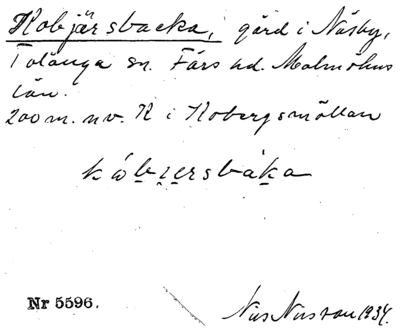 Kobjärsbacka, gård i Näsby,
Tolånga sn. Färs hd. Malmöhus
län.
200 m. nv. K i Kobergsmöllan
kǻb̤i̤e̤rsbàk̤a
Nr 5596.
Nils Nilsson 1934.